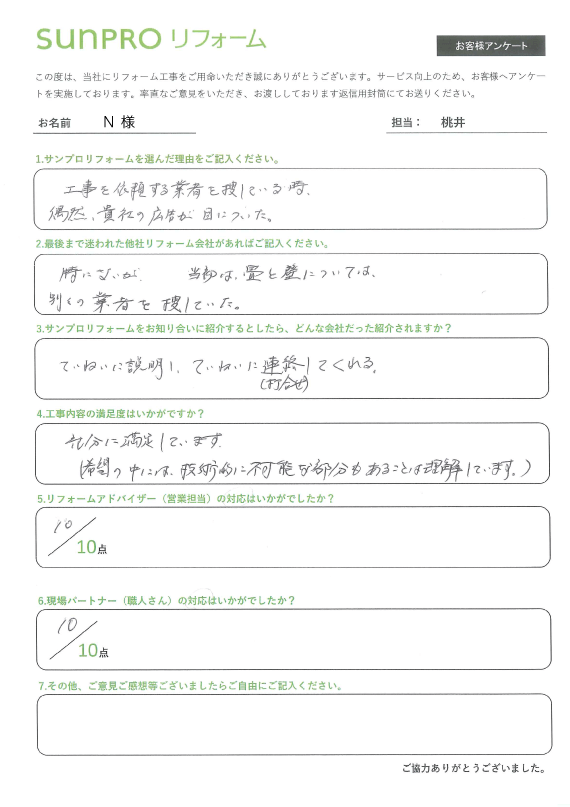 sunPRO リフォーム
お客様アンケート
この度は、当社にリフォーム工事をご用命いただき誠にありがとうございます。サービス向上のため、お客様へアンケー
トを実施しております。率直なご意見をいただき、お渡ししております返信用封筒にてお送りください。
お名前 N 様 担当： 桃井
1.サンプロリフォームを選んだ理由をご記入ください。
工事を依頼する業者を捜している時、
偶然、貴社の広告が目についた。
2.最後まで迷われた他社リフォーム会社があればご記入ください。
特にないが、 当初は、畳と壁については、
別々の業者を捜していた。
3.サンプロリフォームをお知り合いに紹介するとしたら、どんな会社だった紹介されますか？
ていねいに説明し、ていねいに連絡してくれる。
(打合せ)
4.工事内容の満足度はいかがですか？
充分に満足しています。
(希望の中には、技術的に不可能な部分もあることは理解しています。)
5.リフォームアドバイザー（営業担当）の対応はいかがでしたか？
10
10点
6.現場パートナー（職人さん）の対応はいかがでしたか？
10
10点
7.その他、ご意見ご感想等ございましたらご自由にご記入ください。
ご協力ありがとうございました。